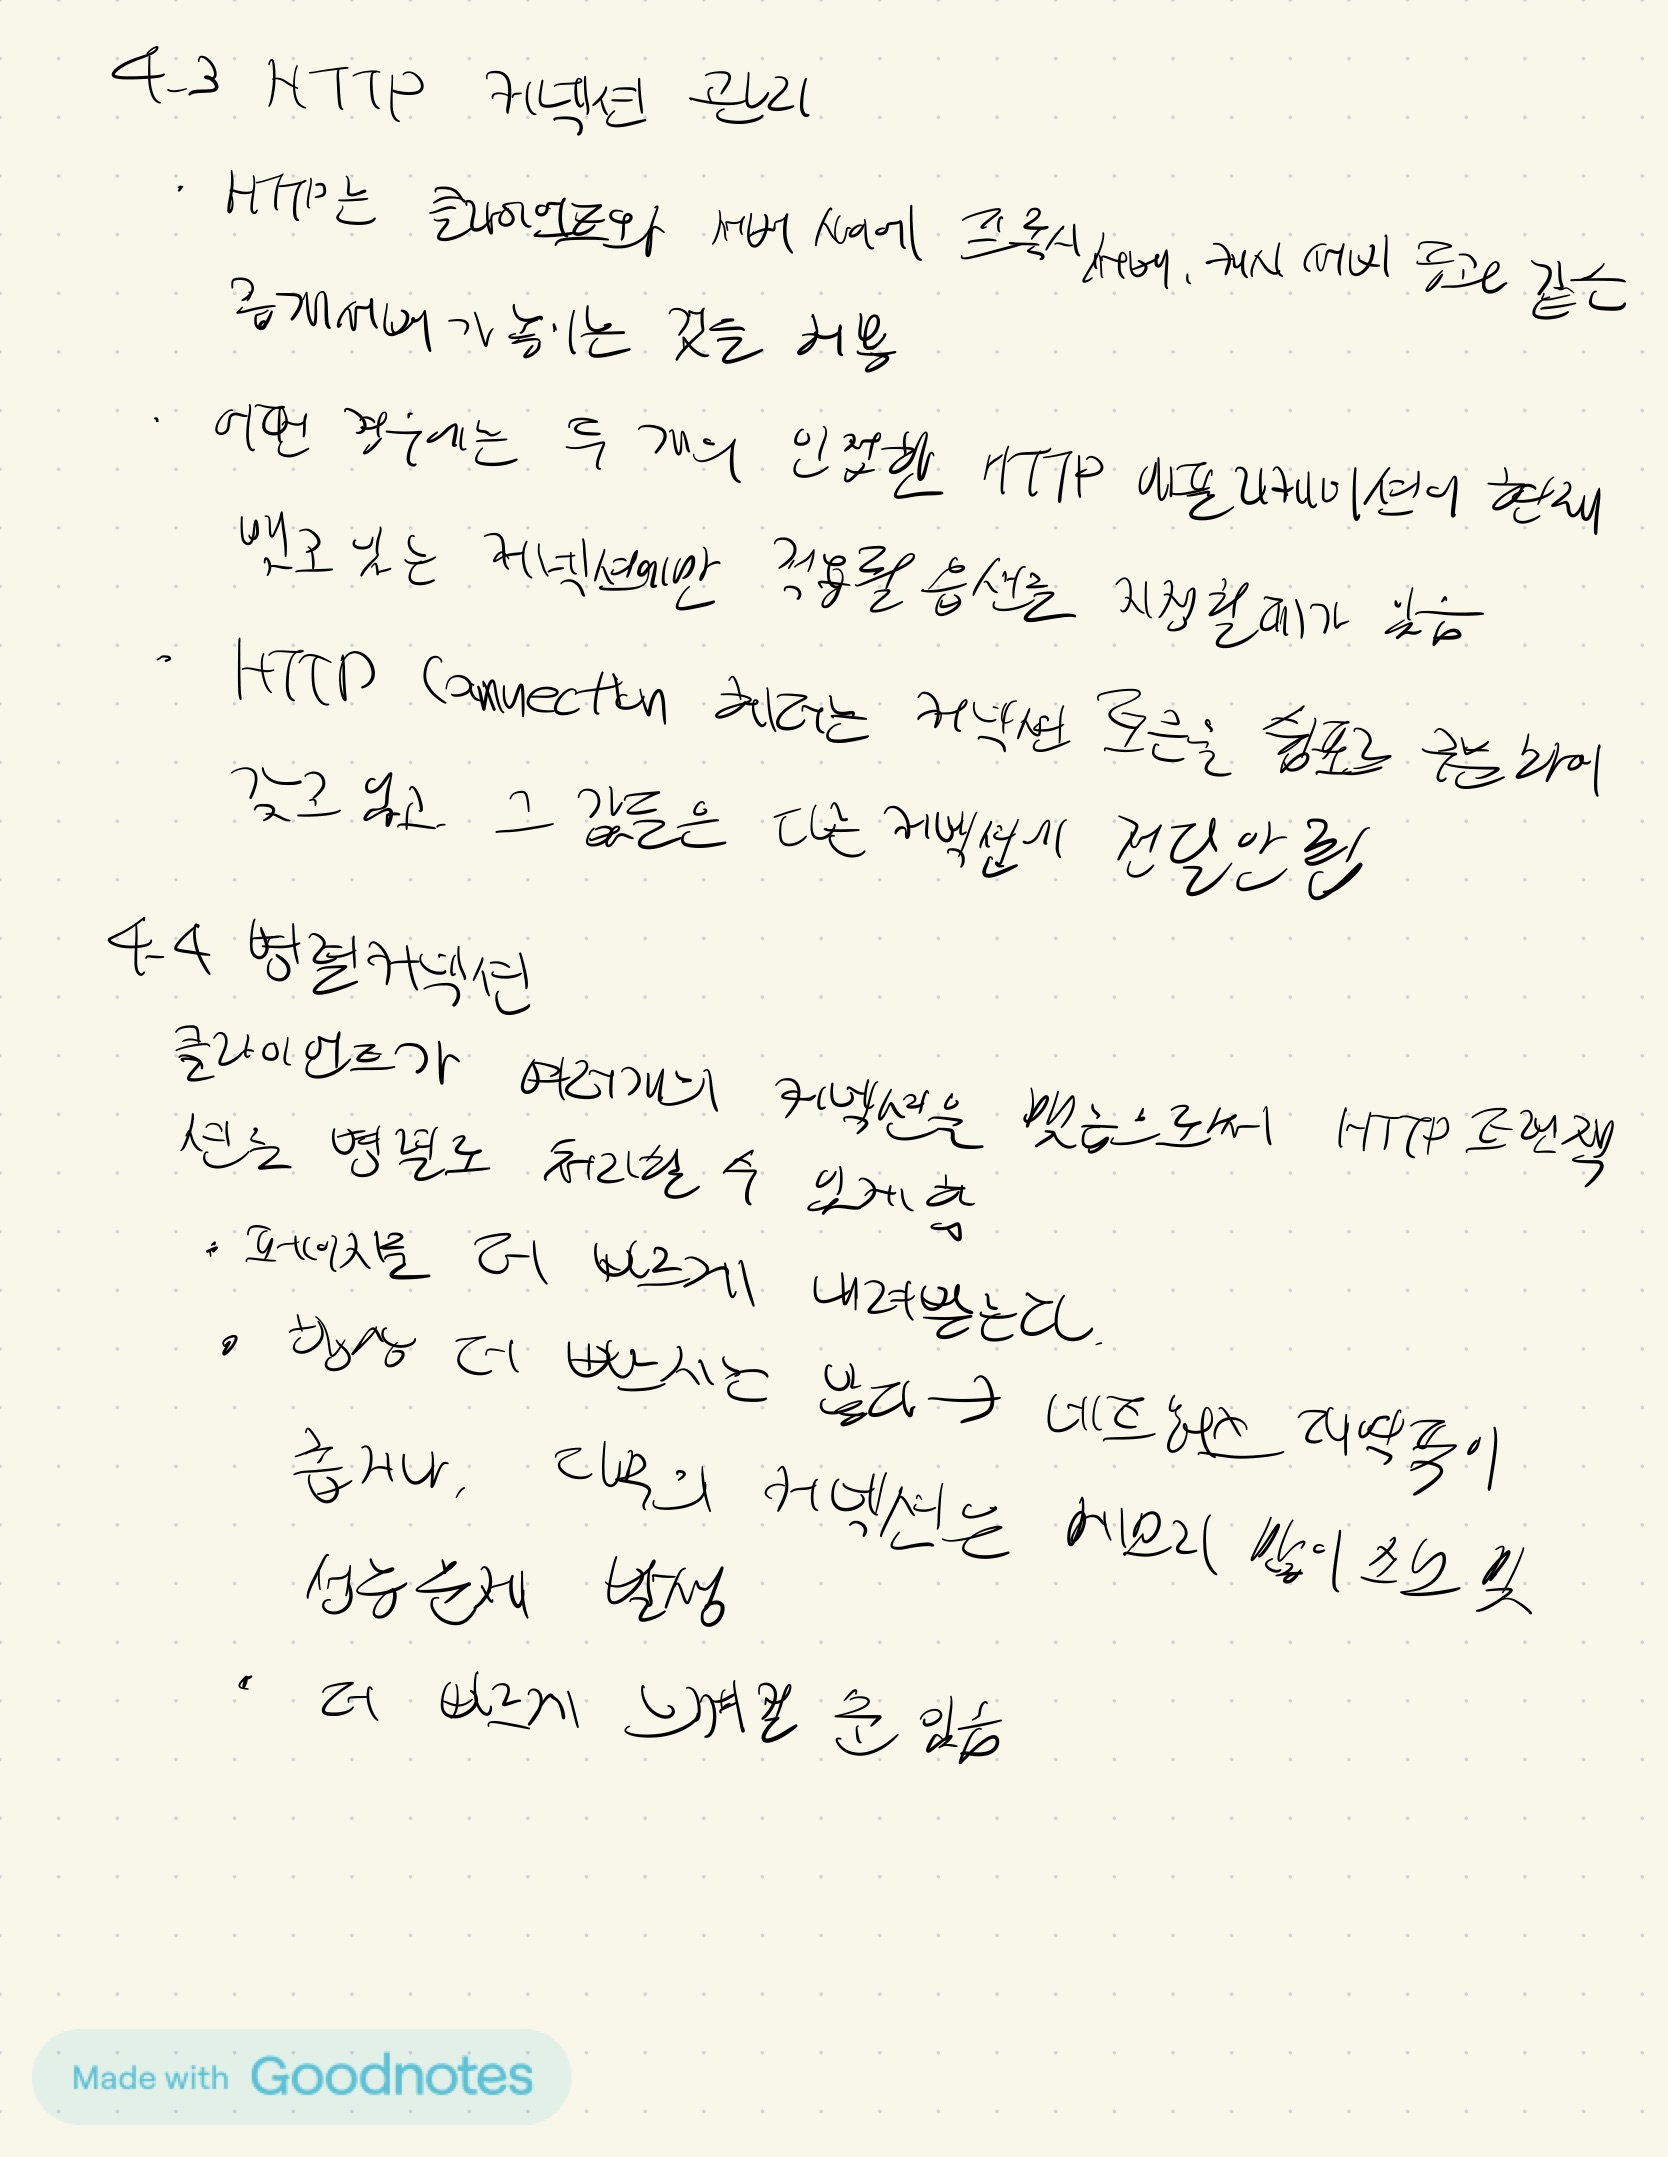 4-3 HTTP 커넥션 관리
· HTTP는 클라이언트와 서버 사이에 프록시 서버, 캐시 서버 등과 같은
중개서버가 놓이는 것을 허용
· 어떤 경우에는 두 개의 인접한 HTTP 애플리케이션이 현재
맺고 있는 커넥션에만 적용될 옵션을 지정할 때가 있음
· HTTP Connection 헤더는 커넥션 토큰을 쉼표로 구분하여
갖고 있고 그 값들은 다른 커넥션에 전달안됨
4-4 병렬커넥션
클라이언트가 여러개의 커넥션을 맺음으로써 HTTP 트랜잭
션을 병렬로 처리할 수 있게 함
· 페이지를 더 빠르게 내려받는다.
· 항상 더 빠르지는 않다 → 네트워크 대역폭이
좁거나, 다목의 커넥션은 메모리 많이 소모 및
성능문제 발생
· 더 빠르게 느껴질 순 있음
Made with Goodnotes